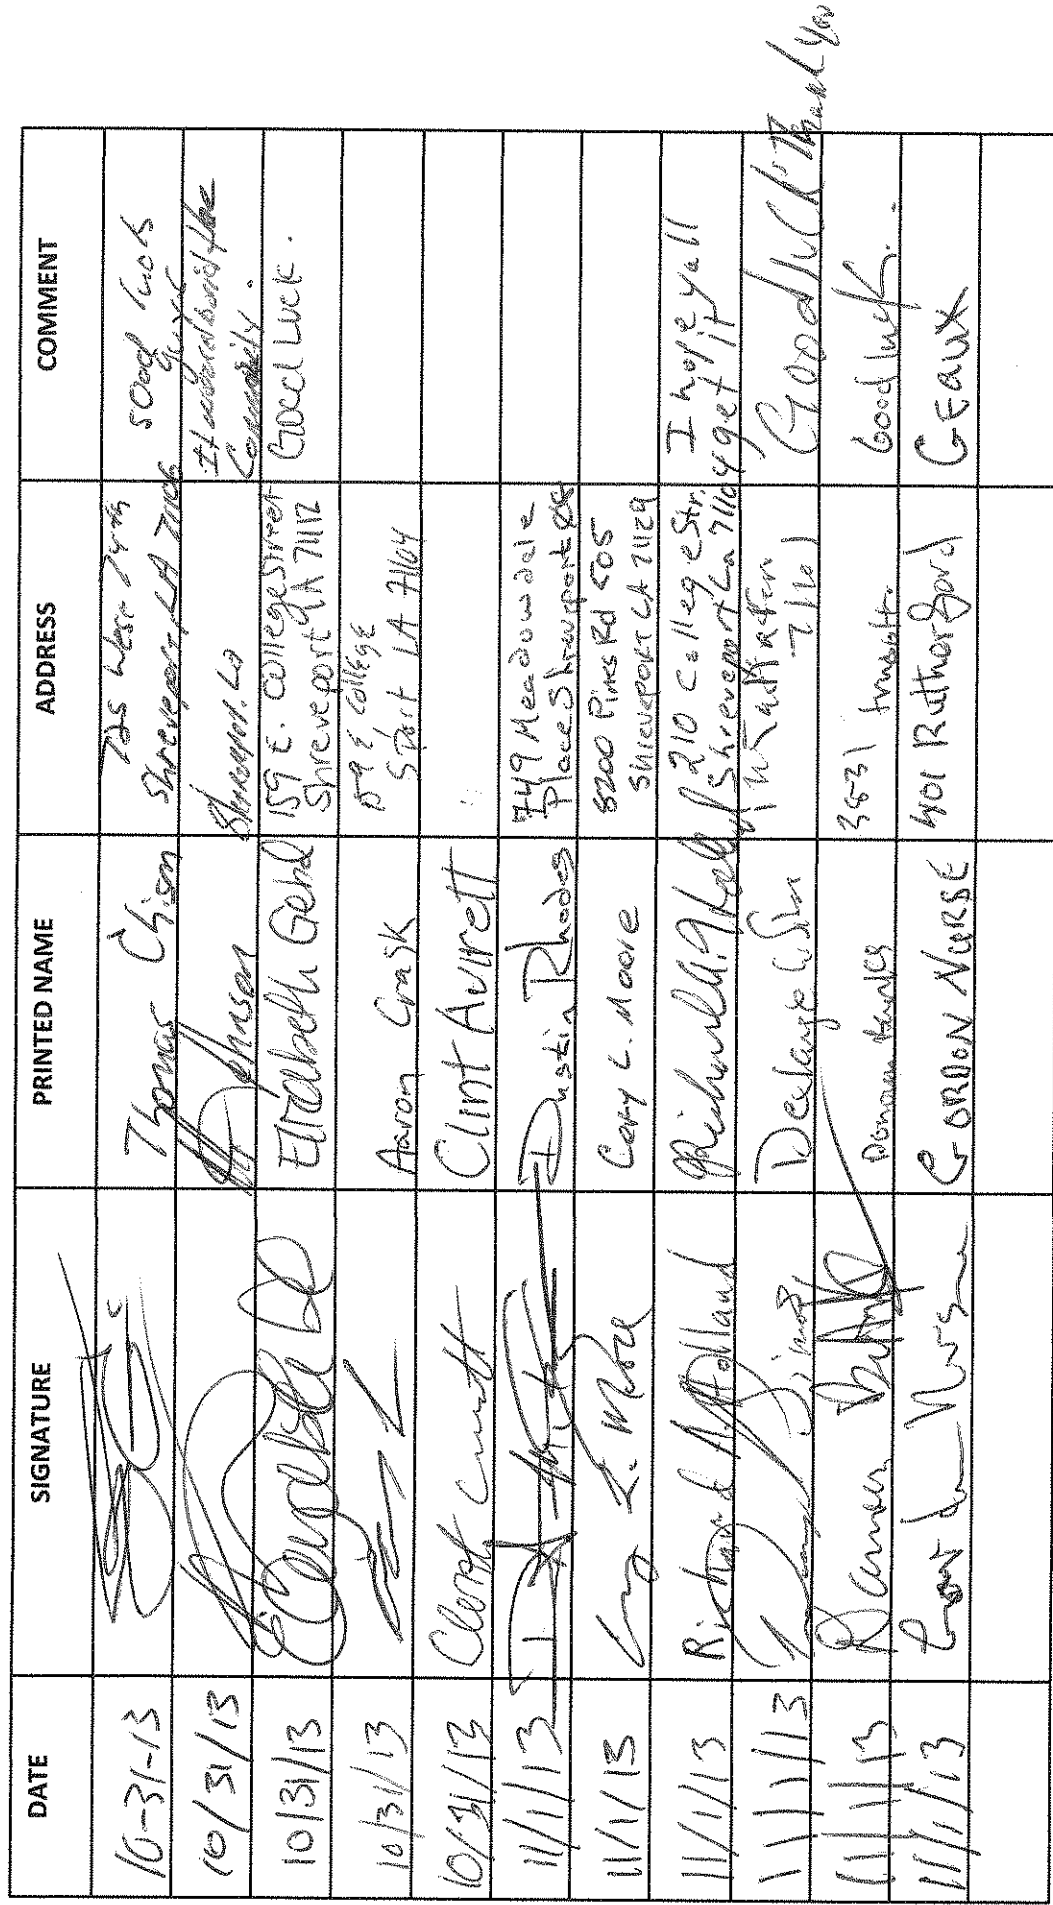 DATE SIGNATURE PRINTED NAME ADDRESS COMMENT
10-31-13 Thomas Chism 725 West 74th
Shreveport, LA 71106 Good luck
guys
10/31/13 Johnson Shreveport. La It the
Community.
10/31/13 Elizabeth Gehd 159 E. College Street
Shreveport LA 71112 Good Luck.
10/31/13 Aaron Crask 159 E College
S Port LA 71104
10/31/13 Clint Avirett
11/1/13 Dustin Rhodes 749 Meadowdale
Place Shreveport
11/1/13 Cory L. Moore Cory L. Moore 8200 Pines Rd 505
Shreveport LA 71129
11/1/13 Richard A Holland Richard A Holland 210 College Str.
Shreveport La 71104 I hope yall
get it
11/1/13 71101 Good luck! Thank you
11/1/13 3831 Good luck.
11/1/13 Gordon Nurse GORDON NURSE 401 Rutherford GEAUX